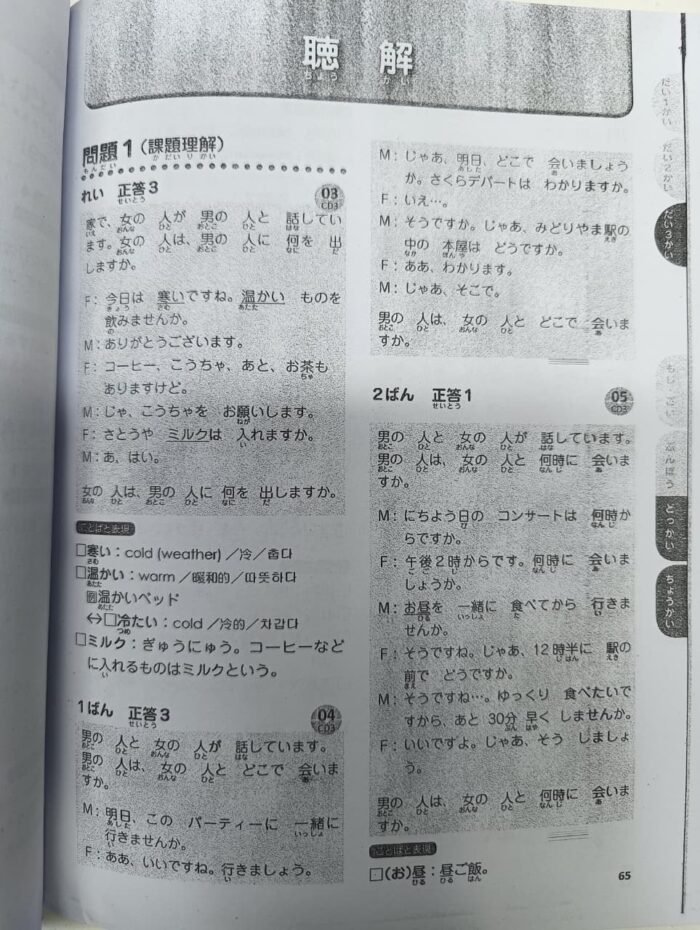 聴解
ちょう かい
問題1（課題理解）
もんだい かだいりかい
れい 正答3
せいとう
03
CD3
家で、女の 人が 男の 人と 話してい
ます。女の 人は、男の 人に 何を 出
しますか。
F：今日は 寒いですね。温かい ものを
飲みませんか。
M：ありがとうございます。
F：コーヒー、こうちゃ、あと、お茶も
ありますけど。
M：じゃ、こうちゃを お願いします。
F：さとうや ミルクは 入れますか。
M：あ、はい。
女の 人は、男の 人に 何を 出しますか。
ことばと表現
□寒い：cold (weather)／冷／춥다
□温かい：warm／暖和的／따뜻하다
例温かいベッド
⇔□冷たい：cold／冷的／차갑다
□ミルク：ぎゅうにゅう。コーヒーなど
に入れるものはミルクという。
1ばん 正答3
せいとう
04
CD3
男の 人と 女の 人が 話しています。
男の 人は、女の 人と どこで 会いま
すか。
M：明日、この パーティーに 一緒に
行きませんか。
F：ああ、いいですね。行きましょう。
M：じゃあ、明日、どこで 会いましょう
か。さくらデパートは わかりますか。
F：いえ…。
M：そうですか。じゃあ、みどりやま駅の
中の 本屋は どうですか。
F：ああ、わかります。
M：じゃあ、そこで。
男の 人は、女の 人と どこで 会いま
すか。
2ばん 正答1
せいとう
05
CD3
男の 人と 女の 人が 話しています。
男の 人は、女の 人と 何時に 会いま
すか。
M：にちよう日の コンサートは 何時か
らですか。
F：午後2時からです。何時に 会いま
しょうか。
M：お昼を 一緒に 食べてから 行きま
せんか。
F：そうですね。じゃあ、12時半に 駅の
前で どうですか。
M：そうですね…。ゆっくり 食べたいで
すから、あと 30分 早く しませんか。
F：いいですよ。じゃあ、そう しましょ
う。
男の 人は、女の 人と 何時に 会いま
すか。
ことばと表現
□(お)昼：昼ご飯。
65
だい1かい
だい2かい
だい3かい
もじ・ごい
ぶんぽう
どっかい
ちょうかい